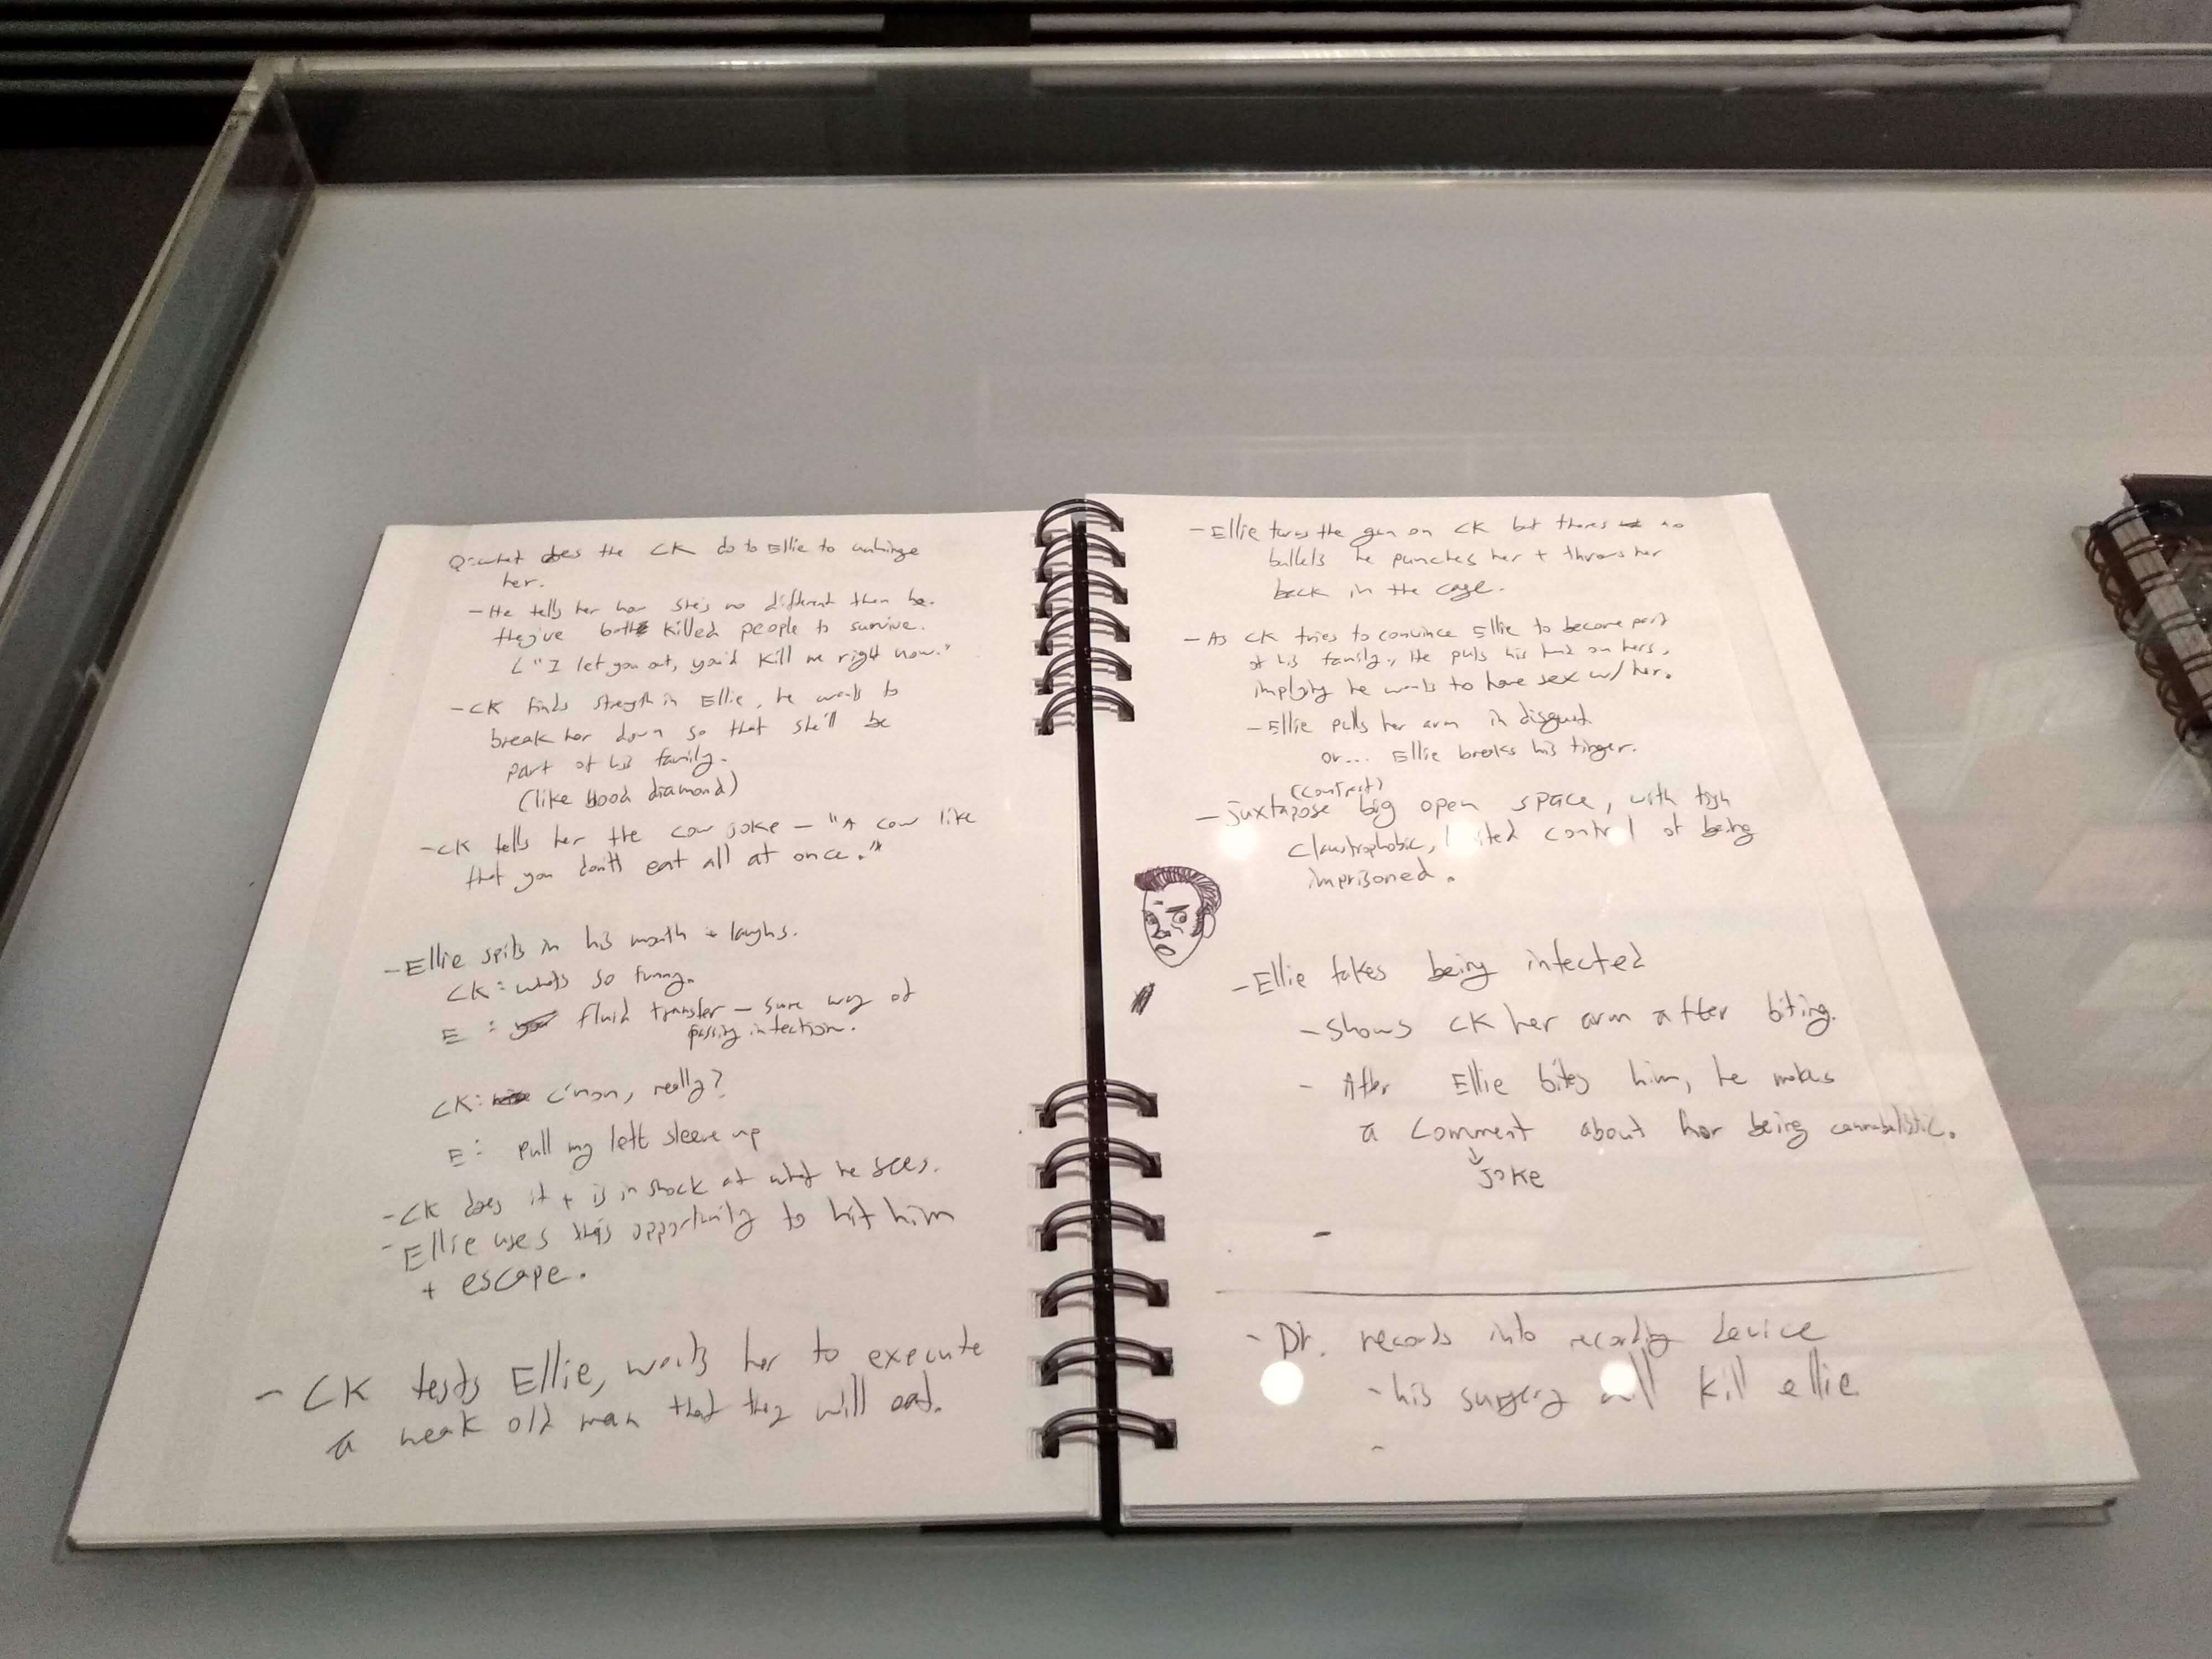 Q: what does the CK do to Ellie to unhinge
her.
- He tells her how she's no different then he.
they've both killed people to survive.
"I let you out, you'd kill me right now."
- CK finds strength in Ellie, he wants to
break her down so that she'll be
part of his family.
(like blood diamond)
- CK tells her the cow joke - "A cow like
that you don't eat all at once."
- Ellie spits in his mouth + laughs.
CK: what's so funny.
E: fluid transfer - sure way of
passing infection.
CK: c'mon, really?
E: pull my left sleeve up
- CK does it + is in shock at what he sees.
- Ellie uses this opportunity to hit him
+ escape.
- CK tests Ellie, wants her to execute
a weak old man that they will eat.
- Ellie turns the gun on CK but theres no
bullets he punches her + throws her
back in the cage.
- As CK tries to convince Ellie to become part
of his family, He puts his hand on hers,
implying he wants to have sex w/ her.
- Ellie pulls her arm in disgust
or... Ellie breaks his finger.
(contrast)
- juxtapose big open space, with tight
claustrophobic, limited control of being
imprisoned.
- Ellie fakes being infected
- shows CK her arm after biting.
- After Ellie bites him, he makes
a comment about her being cannabalistic.
joke
- Dr. records into recording device
- his surgery will kill ellie